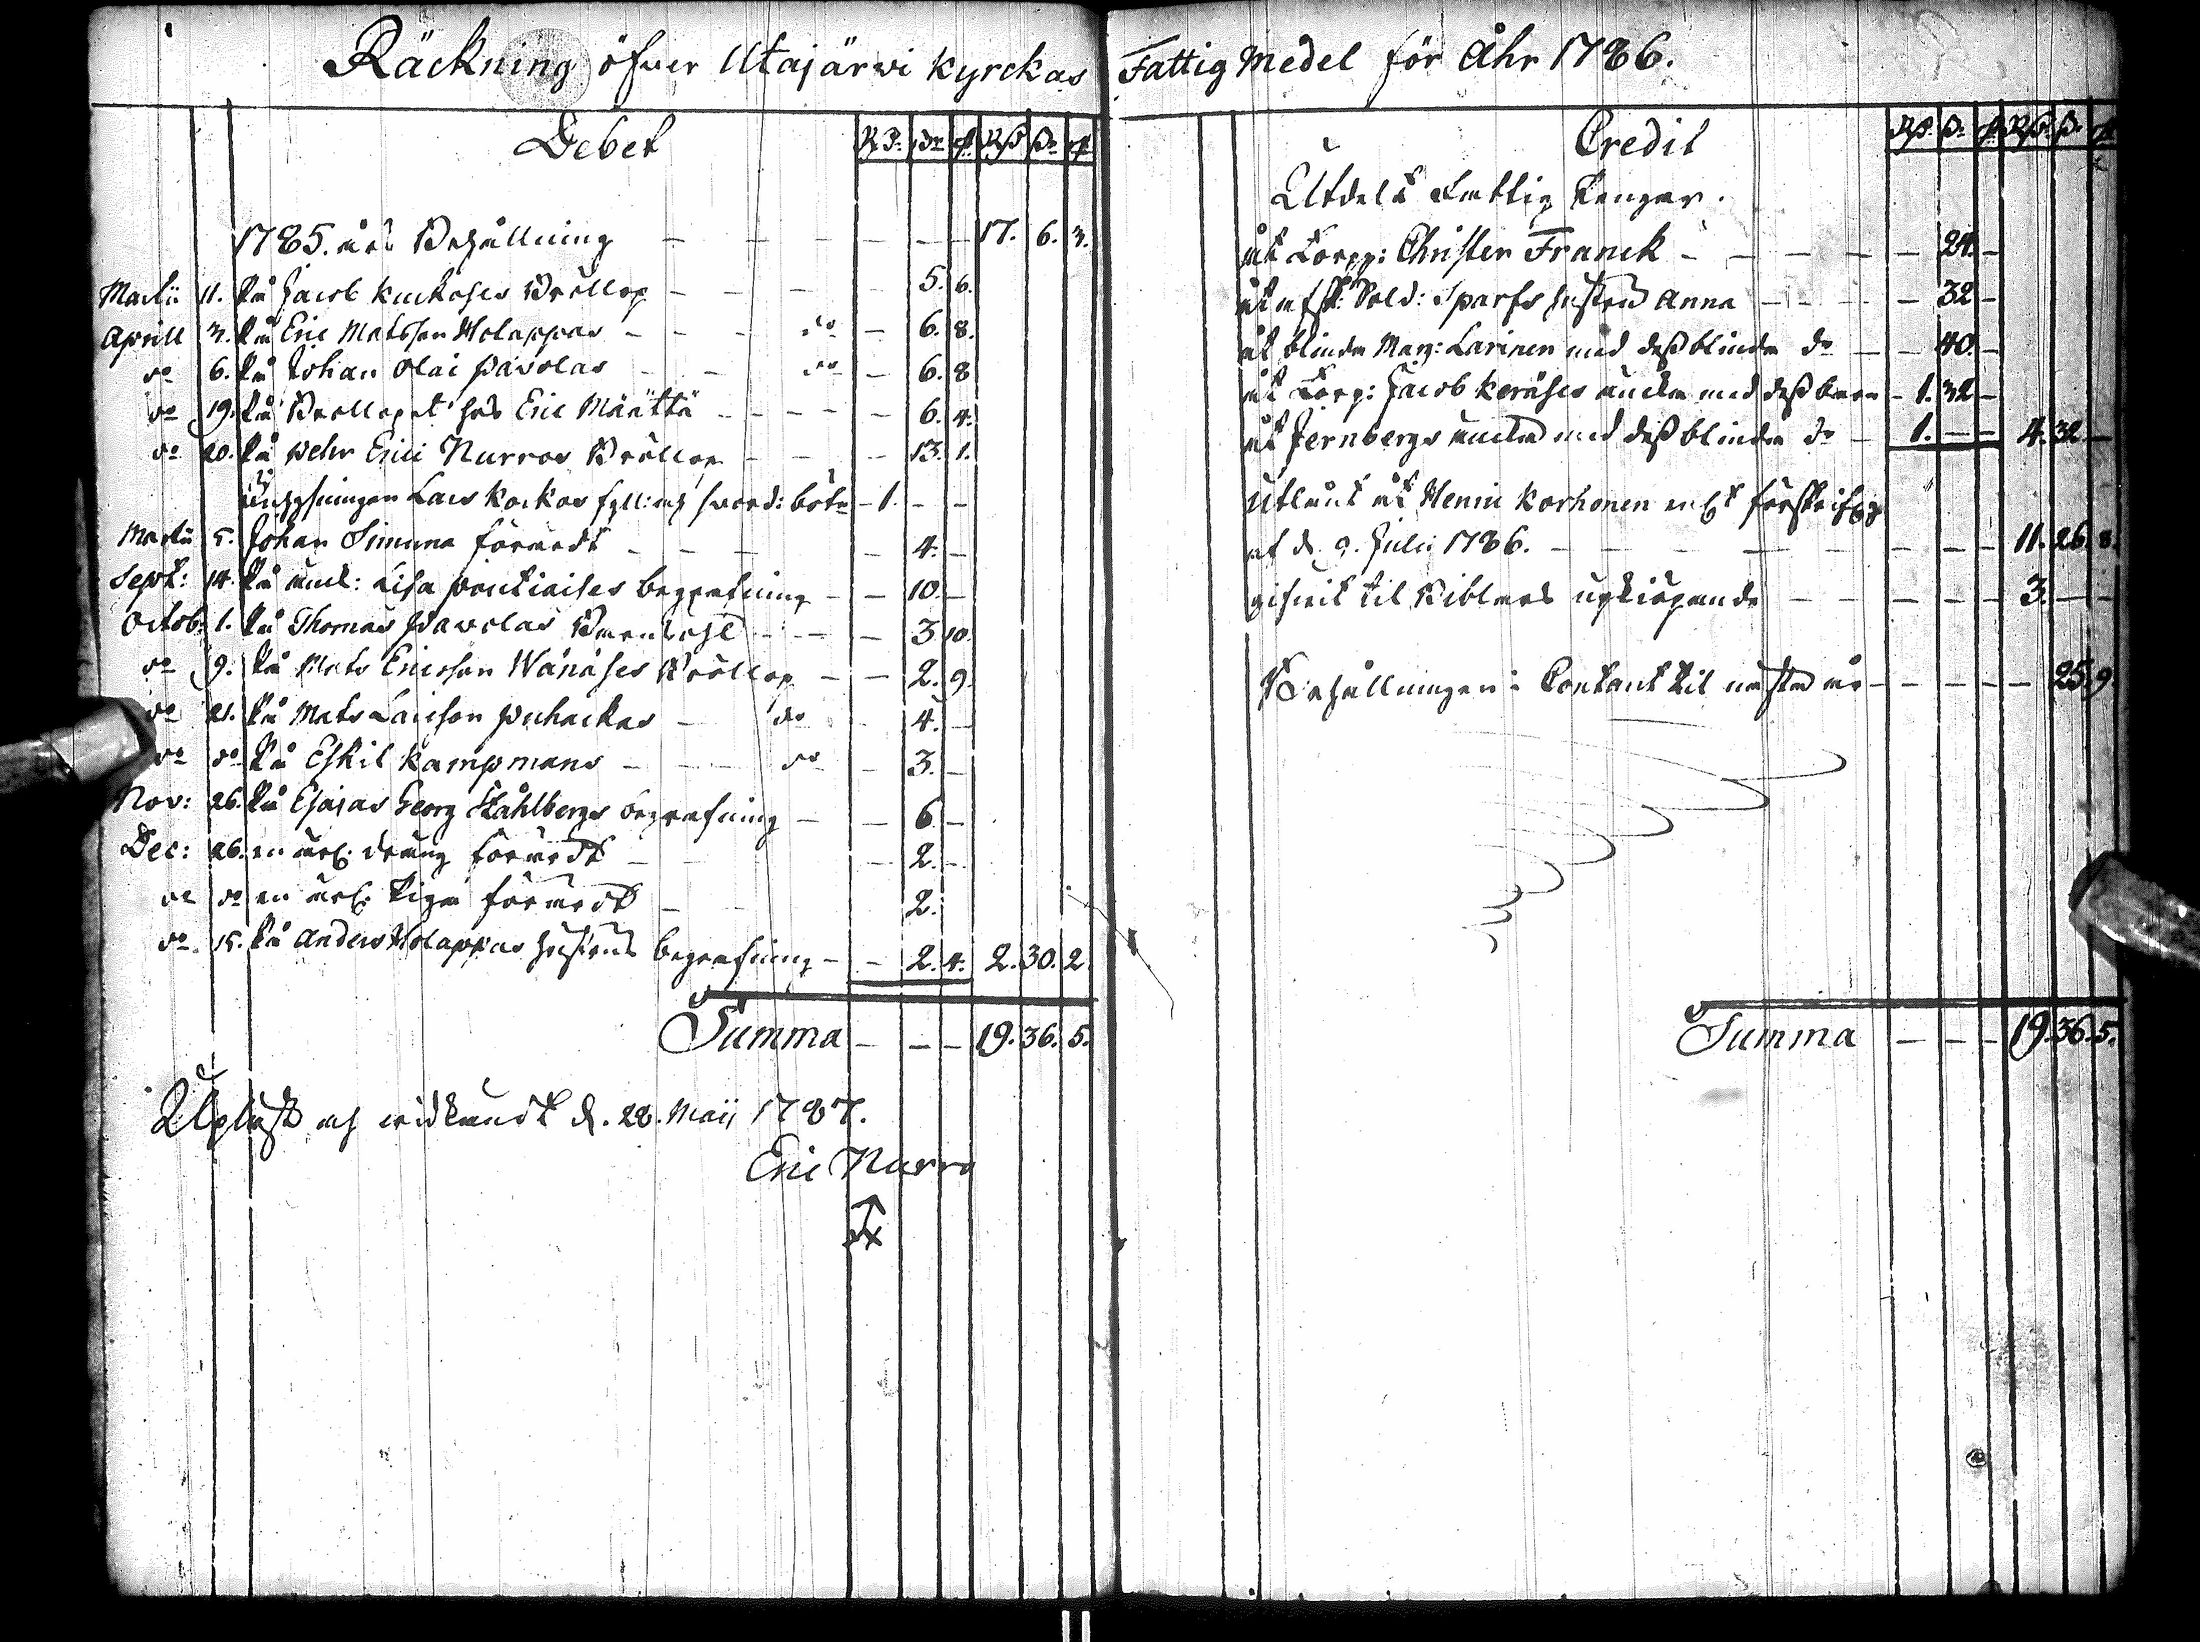 Räckning öfwer Utajärwi kyrckas Fattig Medel för Åhr 1786.
Debet R S ß rs Rß ß rs
1785. års Behållning — — — — — 17. 6. 3.
Martii 11. På Jacob Kuckoses Bröllop — — — 5. 6.
Aprill 3. På Eric Matsson Holappas — — do — 6. 8.
do 6. På Johan Olai Pavolas — — do — 6. 8
do 19. På Brollopet hos Eric Määttä — — — — 6. 4.
do 20. På Pehr Erici Nurros Bröllop — — — 13. 1.
Lars Kockos fyll: och sword: böter — 1. — —
Martii 5. Johan Simuna förärdt — — — 4. —
Sept: 14. På enck: Lisa begrafning — — 10. —
Octob: 1. På Thomas Pawolas Barnsöhl — — — 3 10.
do 9. På Mats Ericsson Wänäses Bröllop — — 2. 9.
do 21. På Mats Larsson Puhackas — do — 4. —
do do På Eskil Kampmans — — do — 3. —
Nov: 26. På Esaias Georg Ståhlbergs begrafning — — 6 —
Dec: 26. en ärl. dräng förärdt — — 2. —
do do en ärl. Piga förärdt — — 2.
do 15. På Anders Holappas hustrus begrafning — — 2. 4. 2. 30. 2.
Summa — — — 19. 36. 5.
Uplåst och widkändt d. 28. Maij 1787.
Eric Nurro
Credit Rß ß rs Rß ß rs
Utdelt Fattig Pengar.
åt Torpp: Christer Franck — — — — — 24. —
åt afsk: Sold: Sparfs hustru Anna — — — — 32 —
åt blinda Marg: Larinen med dess blinda dr — — 40. —
åt Torp: Jacob Keräses encka med dess barn — 1. 32 —
åt Jernbergs encka med dess blinda dr — 1. — — 4. 32. —
Utlånt åt Henric Korhonen
af d. 9. Julii 1786. — — — — — — 11. 26. 8.
gifwit til Biblars upkiöpande — — — — — 3. — —
Behållningen i Contant til nästa år — — — — — 25. 9
Summa — — — 19. 36. 5.